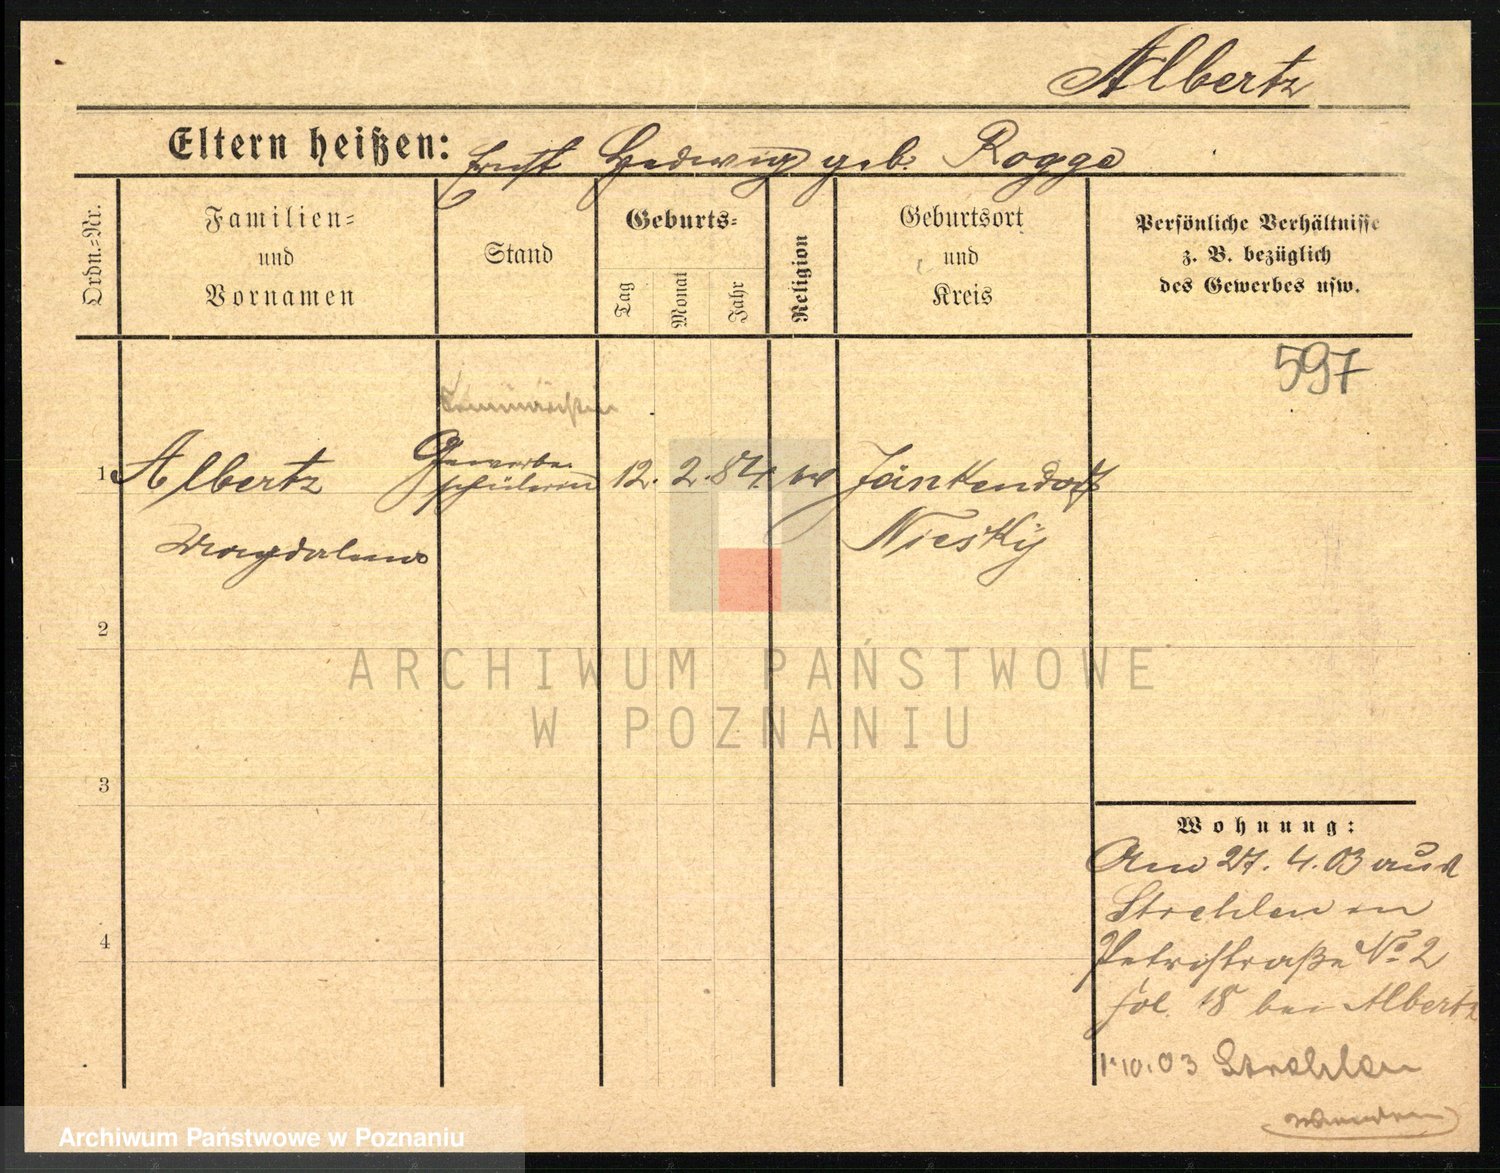 Albertz
Eltern heißen: Ernst Hedwig geb. Rogge
Ordn.=Nr.
Familien=
und
Vornamen
Stand
Geburts=
Tag
Monat
Jahr
Religion
Geburtsort
und
Kreis
Persönliche Verhältnisse
z. B. bezüglich
des Gewerbes usw.
597
Seminaristin
1 Albertz Gewerbe 12. 2. 84. Jänkendorf
schülerin
Magdalena Niesky
2
3
4
Wohnung:
Am 27. 4. 03 aus
Strehlen in
Petristraße No 2
fol. 18 bei Albertz
1.10.03 Strehlen
Wenden
ARCHIWUM PAŃSTWOWE
W POZNANIU
Archiwum Państwowe w Poznaniu